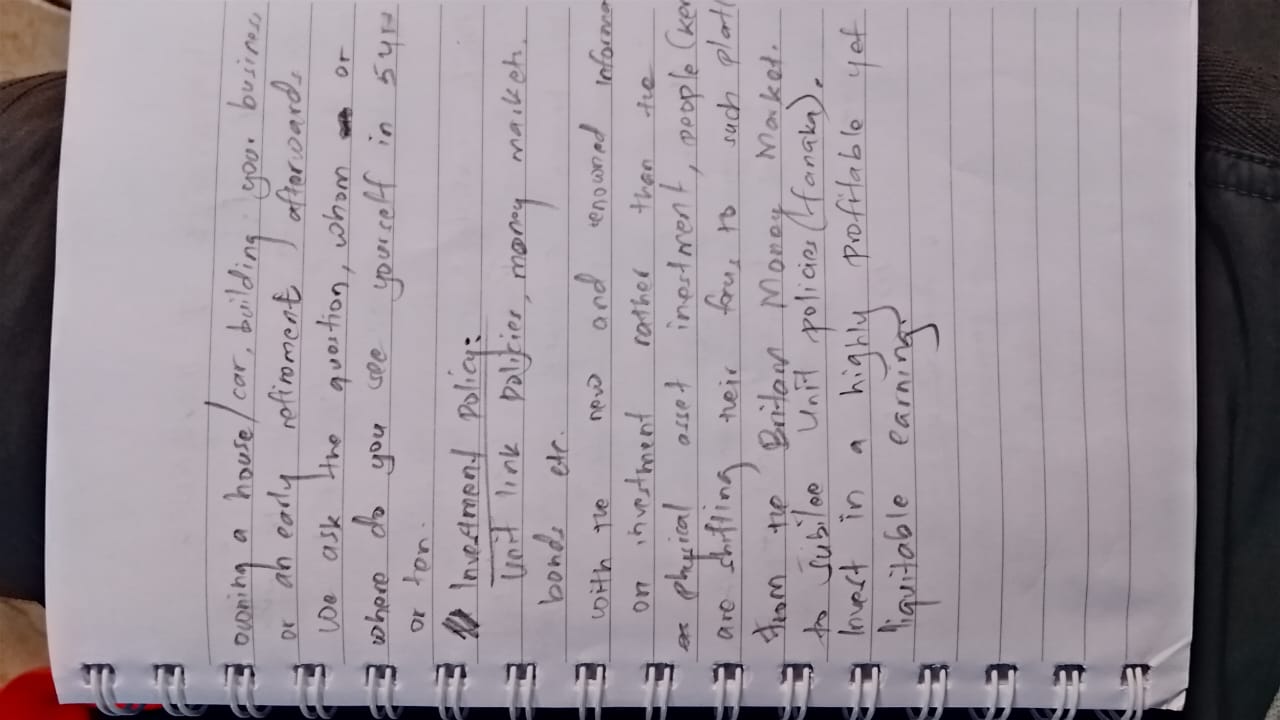 owning a house/car, building your business
or an early retirement afterwards
We ask the question, whom or
where do you see yourself in 5yrs
or ten.
Investment Policy:
Unit link policies, money market,
bonds etc.
with the new and renowned informa
on investment rather than the
physical asset inestment, people (ken
are shifting their focus to such platf
from the Britam Money Market.
to Jubilee Unit policies (fanaka).
Invest in a highly profitable yet
liquitable earning.